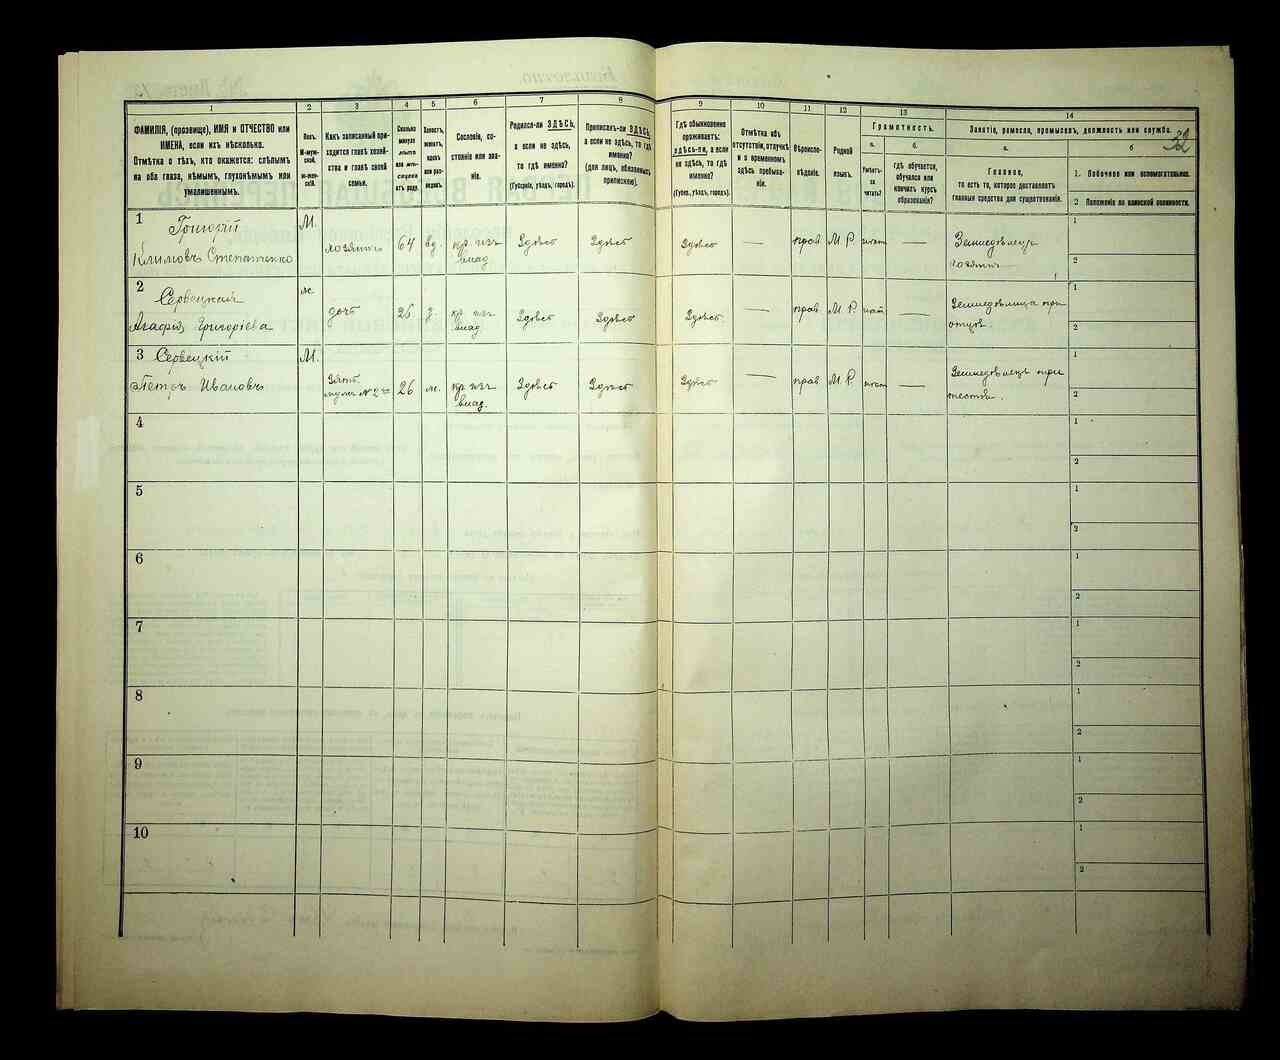 32
1
2
3
4
5
6
7
8
9
10
11
12
13
14
ФАМИЛІЯ, (прозвище), ИМЯ и ОТЧЕСТВО или
ИМЕНА, если ихъ нѣсколько.
Отмѣтка о тѣхъ, кто окажется: слѣпымъ
на оба глаза, нѣмымъ, глухонѣмымъ или
умалишеннымъ.
Полъ.
М-муж-
ской.
Ж-жен-
скій.
Какъ записанный при-
ходится главѣ хозяй-
ства и главѣ своей
семьи.
Сколько
минуло
лѣтъ
или мѣ-
сяцевъ
отъ роду.
Холостъ,
женатъ,
вдовъ
или раз-
веденъ.
Сословіе, со-
стояніе или зва-
ніе.
Родился-ли ЗДѢСЬ,
а если не здѣсь,
то гдѣ именно?
(Губернія, уѣздъ, городъ).
Приписанъ-ли ЗДѢСЬ,
а если не здѣсь, то гдѣ
именно?
(для лицъ, обязанныхъ
припискою).
Гдѣ обыкновенно
проживаетъ:
здѣсь-ли, а если
не здѣсь, то гдѣ
именно?
(Губер., уѣздъ, городъ).
Отмѣтка объ
отсутствіи, отлучкѣ
и о временномъ
здѣсь пребыва-
ніи.
Вѣроиспо-
вѣданіе.
Родной
языкъ.
Грамотность.
а.
Умѣетъ-
ли
читать?
б.
гдѣ обучается,
обучался или
кончилъ курсъ
образованія?
Занятіе, ремесло, промыселъ, должность или служба.
а.
Главное,
то есть то, которое доставляетъ
главныя средства для существованія.
б
1. Побочное или вспомогательное.
2 Положеніе по воинской повинности.
1 Григорій М. 1
Климовъ Степатенко хозяинъ 64 вд. кр. изъ Здѣсь Здѣсь Здѣсь — прав М. Р. — Земледѣлец
влад. хозяинъ 2
2 Сервецкая ж. 1
Агафія Григоріева дочь 26 з. кр. изъ Здѣсь Здѣсь Здѣсь — прав М. Р. — Земледѣлица при
влад. отцѣ. 2
3 Сервецкій М. 1
Петръ Ивановъ зять 26 ж. кр изъ Здѣсь Здѣсь Здѣсь — прав М. Р. — Земледѣлец при
мужъ № 2го влад. тестѣ. 2
4 1
2
5 1
2
6 1
2
7 1
2
8 1
2
9 1
2
10 1
2